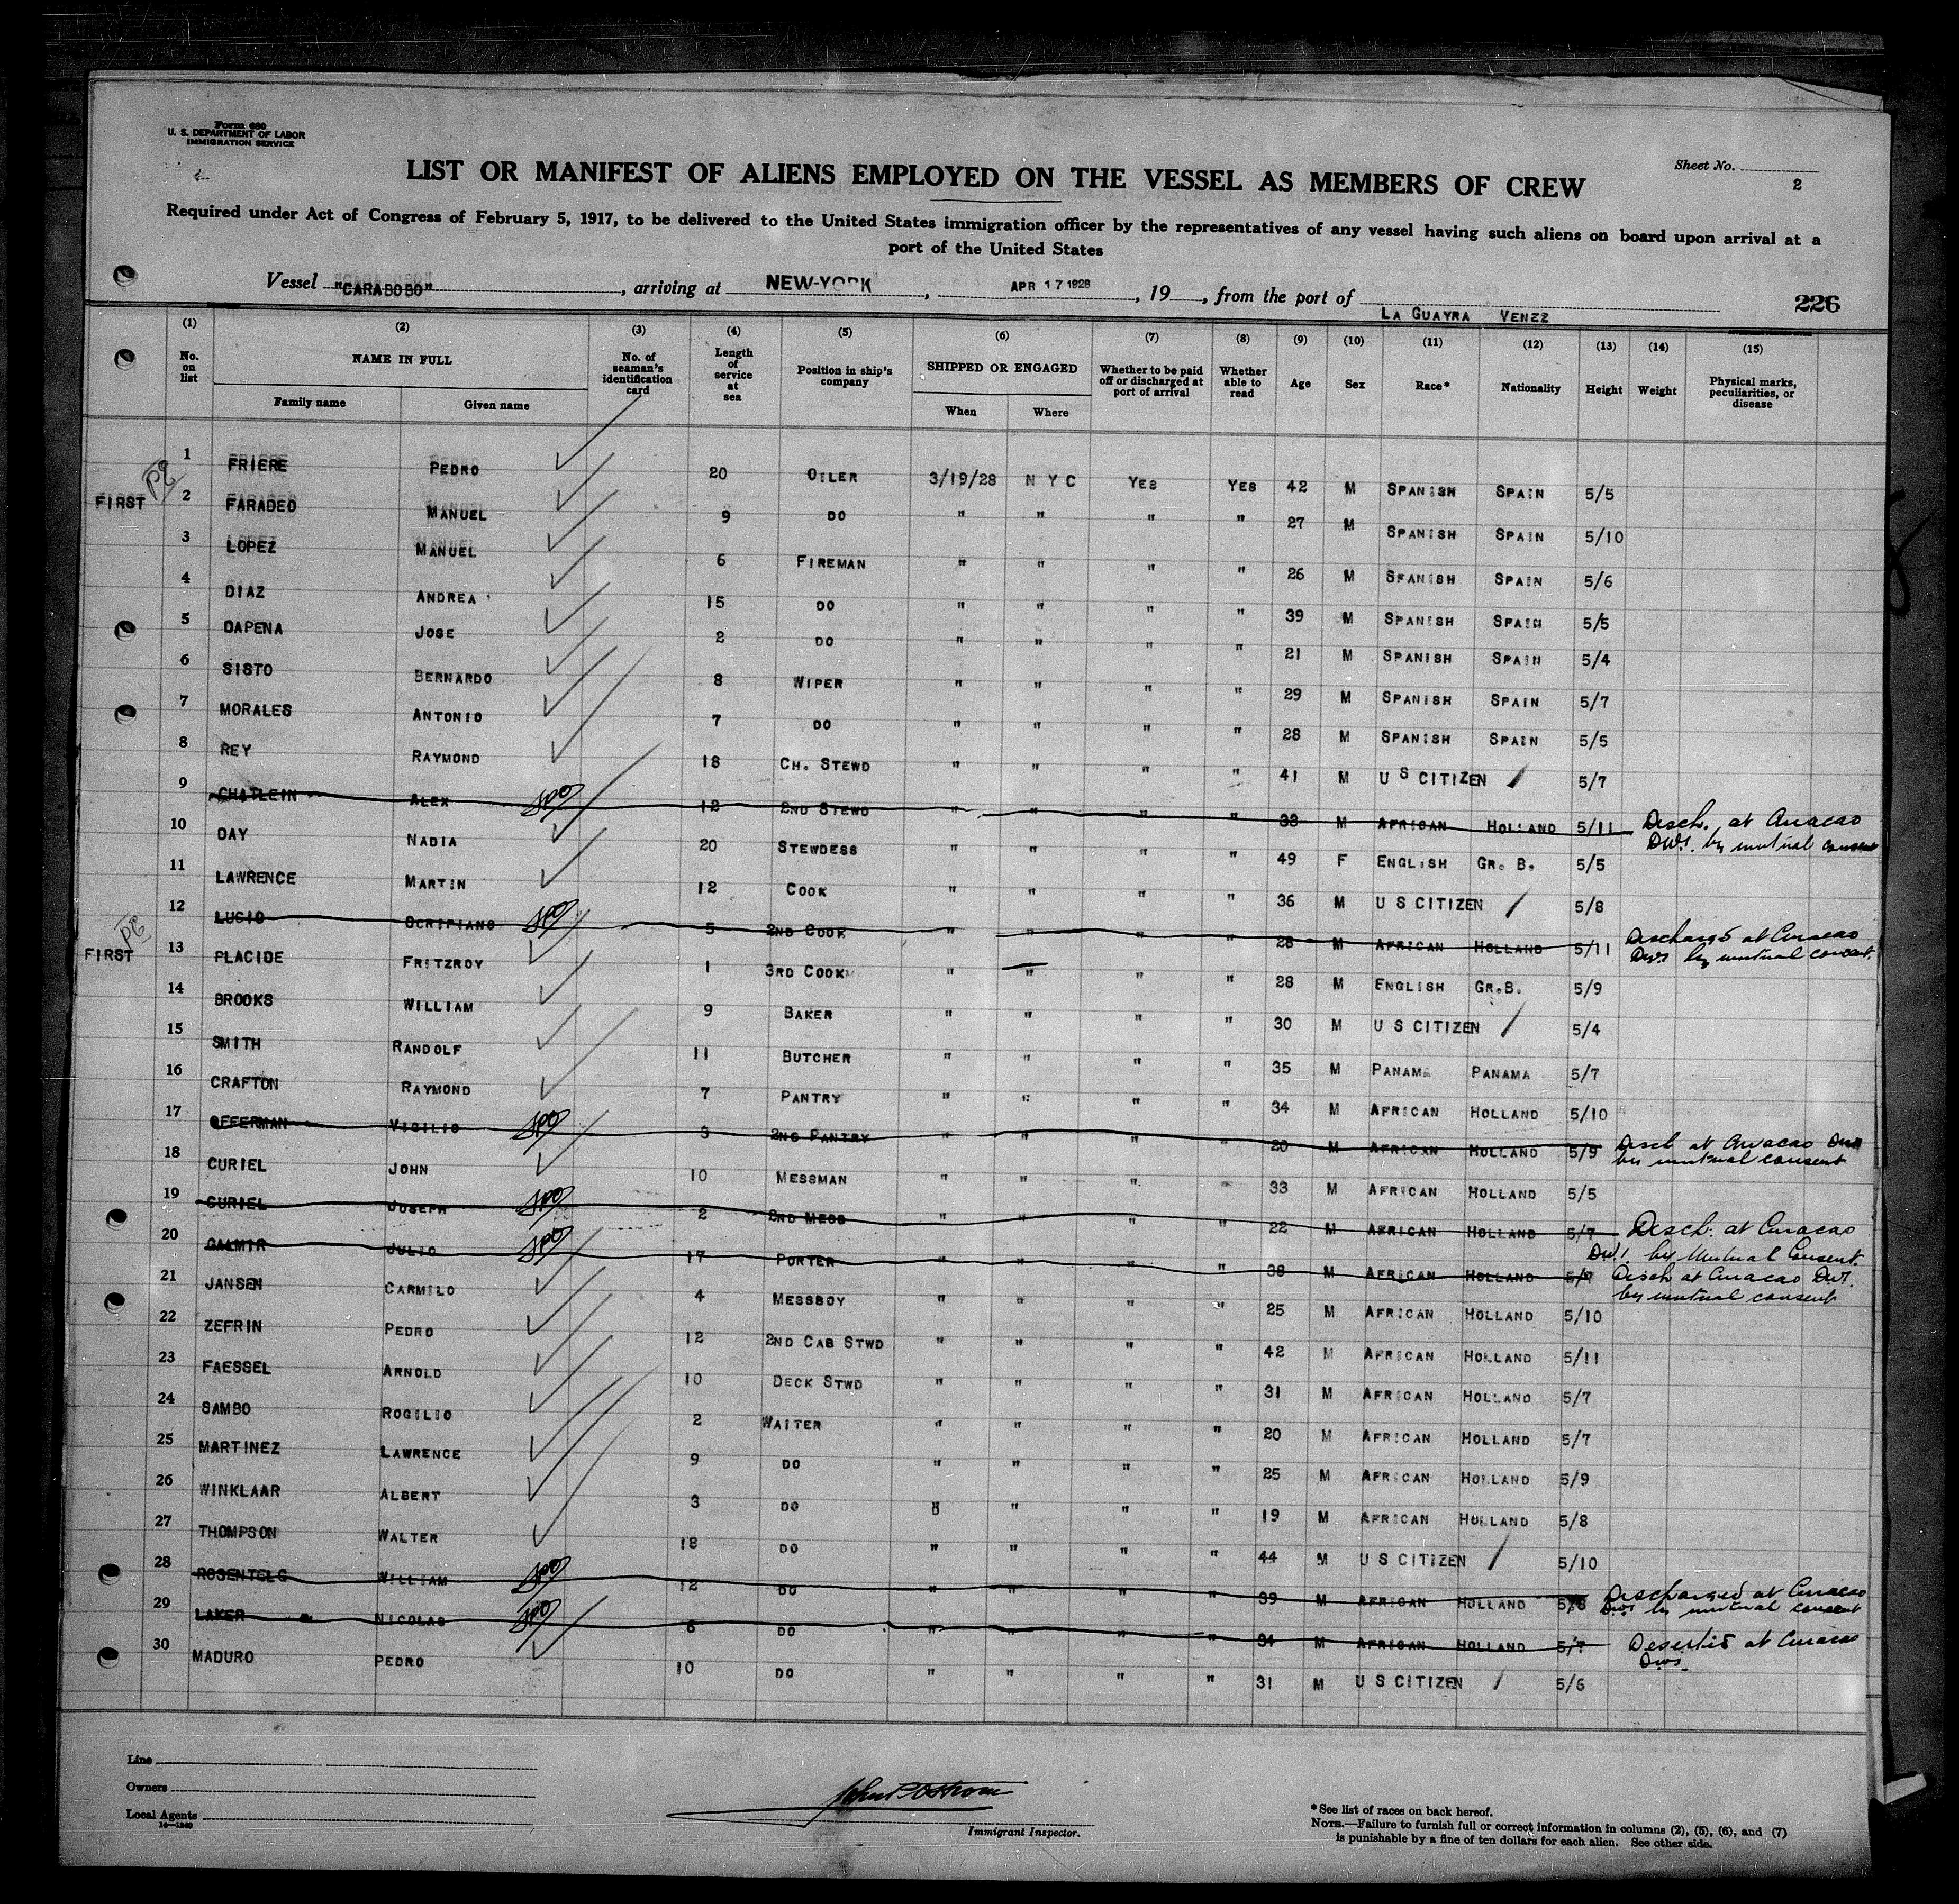 Form 680
U. S. DEPARTMENT OF LABOR
IMMIGRATION SERVICE
Sheet No. 2
LIST OR MANIFEST OF ALIENS EMPLOYED ON THE VESSEL AS MEMBERS OF CREW
Required under Act of Congress of February 5, 1917, to be delivered to the United States immigration officer by the representatives of any vessel having such aliens on board upon arrival at a
port of the United States
Vessel "CARABOBO", arriving at NEW-YORK, APR 17 1928, 19 , from the port of LA GUAYRA VENEZ
226
(1) (2) (3) (4) (5) (6) (7) (8) (9) (10) (11) (12) (13) (14) (15)
No. on list NAME IN FULL Family name Given name No. of seaman's identification card Length of service at sea Position in ship's company SHIPPED OR ENGAGED When Where Whether to be paid off or discharged at port of arrival Whether able to read Age Sex Race* Nationality Height Weight Physical marks, peculiarities, or disease
1 FRIERE PEDRO 20 OILER 3/19/28 N Y C YES YES 42 M SPANISH SPAIN 5/5
FIRST 2 FARADEO MANUEL 9 DO " " " " 27 M SPANISH SPAIN 5/10
3 LOPEZ MANUEL 6 FIREMAN " " " " 26 M SPANISH SPAIN 5/6
4 DIAZ ANDREA 15 DO " " " " 39 M SPANISH SPAIN 5/5
5 DAPENA JOSE 2 DO " " " " 21 M SPANISH SPAIN 5/4
6 SISTO BERNARDO 8 WIPER " " " " 29 M SPANISH SPAIN 5/7
7 MORALES ANTONIO 7 DO " " " " 28 M SPANISH SPAIN 5/5
8 REY RAYMOND 18 CH. STEWD " " " " 41 M U S CITIZEN / 5/7
9 CHATLEIN ALEX 12 2ND STEWD " " " " 33 M AFRICAN HOLLAND 5/11 Disch. at Curacao
DWI. by mutual consent
10 DAY NADIA 20 STEWDESS " " " " 49 F ENGLISH GR. B. 5/5
11 LAWRENCE MARTIN 12 COOK " " " " 36 M U S CITIZEN / 5/8
12 LUCIO SCRIPIANO 5 2ND COOK " " " " 28 M AFRICAN HOLLAND 5/11 Discharged at Curacao
DWI by mutual consent.
FIRST 13 PLACIDE FRITZROY 1 3RD COOK " " " " 28 M ENGLISH GR.B. 5/9
14 BROOKS WILLIAM 9 BAKER " " " " 30 M U S CITIZEN / 5/4
15 SMITH RANDOLF 11 BUTCHER " " " " 35 M PANAMA PANAMA 5/7
16 CRAFTON RAYMOND 7 PANTRY " " " " 34 M AFRICAN HOLLAND 5/10
17 OFFERMAN VIGILIO 3 2ND PANTRY " " " " 20 M AFRICAN HOLLAND 5/9 Disch at Curacao DWI
by mutual consent
18 CURIEL JOHN 10 MESSMAN " " " " 33 M AFRICAN HOLLAND 5/5
19 CURIEL JOSEPH 2 2ND MESS " " " " 22 M AFRICAN HOLLAND 5/7 Disch. at Curacao
DWI. by Mutual Consent.
20 GALMIR JULIO 17 PORTER " " " " 38 M AFRICAN HOLLAND 5/7 Disch at Curacao DWI.
by mutual consent
21 JANSEN CARMILO 4 MESSBOY " " " " 25 M AFRICAN HOLLAND 5/10
22 ZEFRIN PEDRO 12 2ND CAB STWD " " " " 42 M AFRICAN HOLLAND 5/11
23 FAESSEL ARNOLD 10 DECK STWD " " " " 31 M AFRICAN HOLLAND 5/7
24 SAMBO ROGILIO 2 WAITER " " " " 20 M AFRICAN HOLLAND 5/7
25 MARTINEZ LAWRENCE 9 DO " " " " 25 M AFRICAN HOLLAND 5/9
26 WINKLAAR ALBERT 3 DO " " " " 19 M AFRICAN HOLLAND 5/8
27 THOMPSON WALTER 18 DO " " " " 44 M U S CITIZEN / 5/10
28 WILLIAM 12 DO " " " " 39 M AFRICAN HOLLAND Discharged at Curacao
DWI by mutual consent
29 LAKER NICOLAS 6 DO " " " " 34 M AFRICAN HOLLAND 5/7 Deserted at Curacao
DWI.
30 MADURO PEDRO 10 DO " " " " 31 M U S CITIZEN / 5/6
Line
Owners
Local Agents
14—1240
John P. Ostrom
Immigrant Inspector.
*See list of races on back hereof.
NOTE.—Failure to furnish full or correct information in columns (2), (5), (6), and (7)
is punishable by a fine of ten dollars for each alien. See other side.